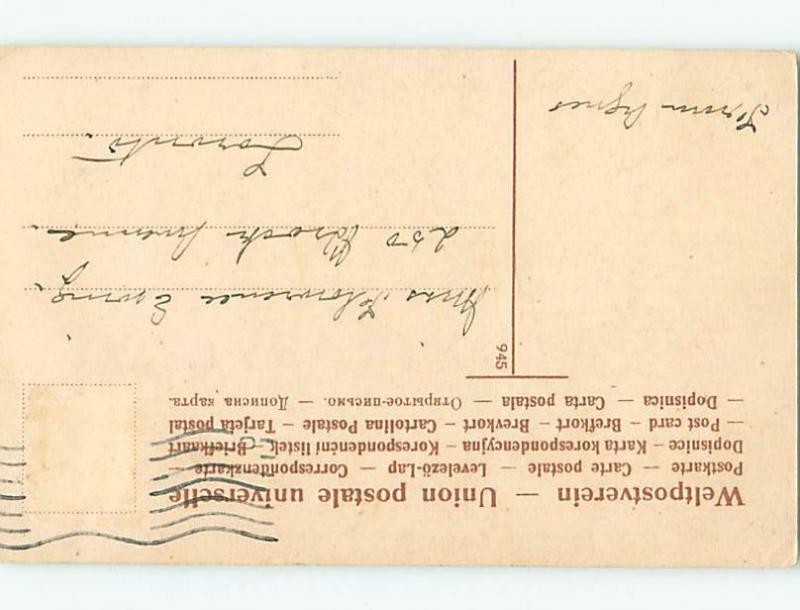 Weltpostverein — Union postale universelle
Postkarte — Carte postale — Levelező-Lap — Correspondenzkarte —
Dopisnice — Karta korespondencyjna — Korespondenční lístek — Briefkaart
— Post card — Brefkort — Brevkort — Cartolina Postale — Tarjeta postal
— Dopisnica — Carta postala — Открытое-письмо. — Дописна карта.
945
Miss Florence Ewing.
250 Brock Avenue.
Toronto.
From Agnes